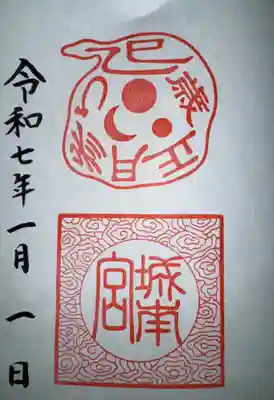 巳歳正月詣り
城南宮
令和七年一月一日